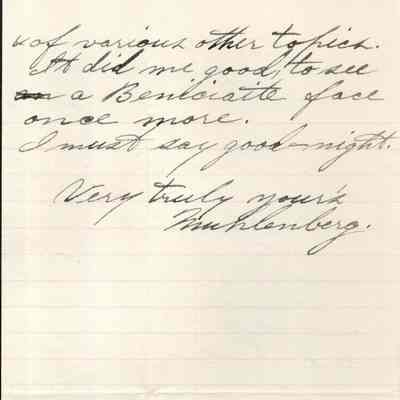 & of various other topics.
It did me good, to see
a Beniciaite face
once more.
I must say good-night.
Very truly your's
Muhlenberg.